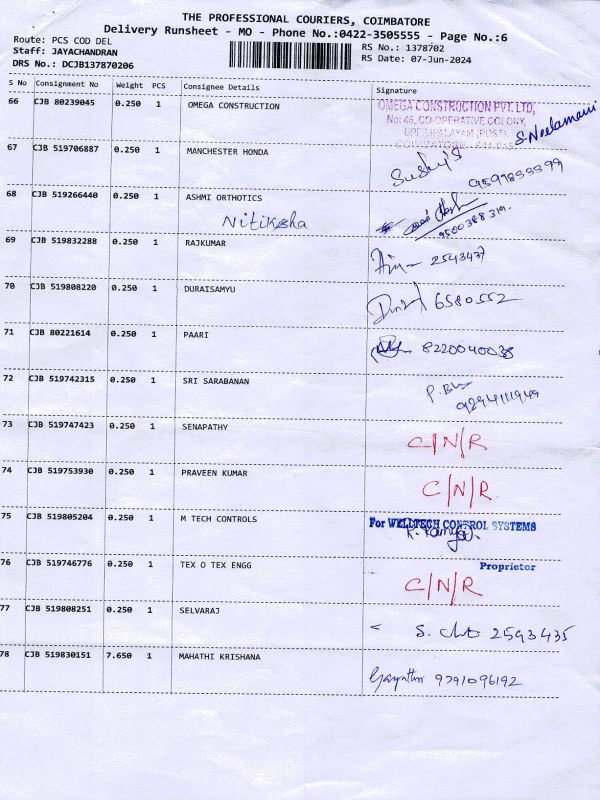 THE PROFESSIONAL COURIERS, COIMBATORE
Delivery Runsheet - MO - Phone No.:0422-3505555 - Page No.:6
Route: PCS COD DEL
Staff: JAYACHANDRAN
DRS No.: DCJB137870206
RS No.: 1378702
RS Date: 07-Jun-2024
S No Consignment No Weight PCS Consignee Details Signature
66 CJB 80239045 0.250 1 OMEGA CONSTRUCTION
OMEGA CONSTRUCTION PVT.LTD,
No: 46, CO-OPERATIVE COLONY,
UPPILIPALAYAM (POST),
COIMBATORE - 641 015
S. Neelamani
67 CJB 519706887 0.250 1 MANCHESTER HONDA
68 CJB 519266440 0.250 1 ASHMI ORTHOTICS
Nitiksha
9500388319.
69 CJB 519832288 0.250 1 RAJKUMAR
2543437
70 CJB 519808220 0.250 1 DURAISAMYU
6580552
71 CJB 80221614 0.250 1 PAARI
8220040038
72 CJB 519742315 0.250 1 SRI SARABANAN
73 CJB 519747423 0.250 1 SENAPATHY
C/N/R
74 CJB 519753930 0.250 1 PRAVEEN KUMAR
C/N/R
75 CJB 519805204 0.250 1 M TECH CONTROLS
For WELLTECH CONTROL SYSTEMS
Proprietor
76 CJB 519746776 0.250 1 TEX O TEX ENGG
C/N/R
77 CJB 519808251 0.250 1 SELVARAJ
2593435
78 CJB 519830151 7.650 1 MAHATHI KRISHANA
Gayathri 9791096192